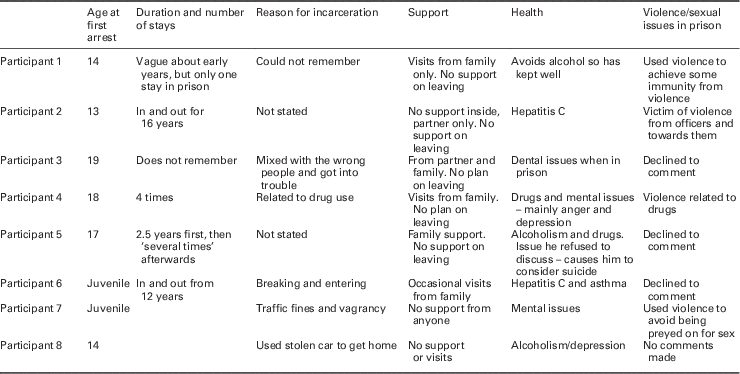 Age at first arrest	Duration and number of stays	Reason for incarceration	Support	Health	Violence/sexual issues in prison
Participant 1	14	Vague about early years, but only one stay in prison	Could not remember	Visits from family only. No support on leaving	Avoids alcohol so has kept well	Used violence to achieve some immunity from violence
Participant 2	13	In and out for 16 years	Not stated	No support inside, partner only. No support on leaving	Hepatitis C	Victim of violence from officers and towards them
Participant 3	19	Does not remember	Mixed with the wrong people and got into trouble	From partner and family. No plan on leaving	Dental issues when in prison	Declined to comment
Participant 4	18	4 times	Related to drug use	Visits from family. No plan on leaving	Drugs and mental issues – mainly anger and depression	Violence related to drugs
Participant 5	17	2.5 years first, then ‘several times’ afterwards	Not stated	Family support. No support on leaving	Alcoholism and drugs. Issue he refused to discuss – causes him to consider suicide	Declined to comment
Participant 6	Juvenile	In and out from 12 years	Breaking and entering	Occasional visits from family	Hepatitis C and asthma	Declined to comment
Participant 7	Juvenile		Traffic fines and vagrancy	No support from anyone	Mental issues	Used violence to avoid being preyed on for sex
Participant 8	14		Used stolen car to get home	No support or visits	Alcoholism/depression	No comments made